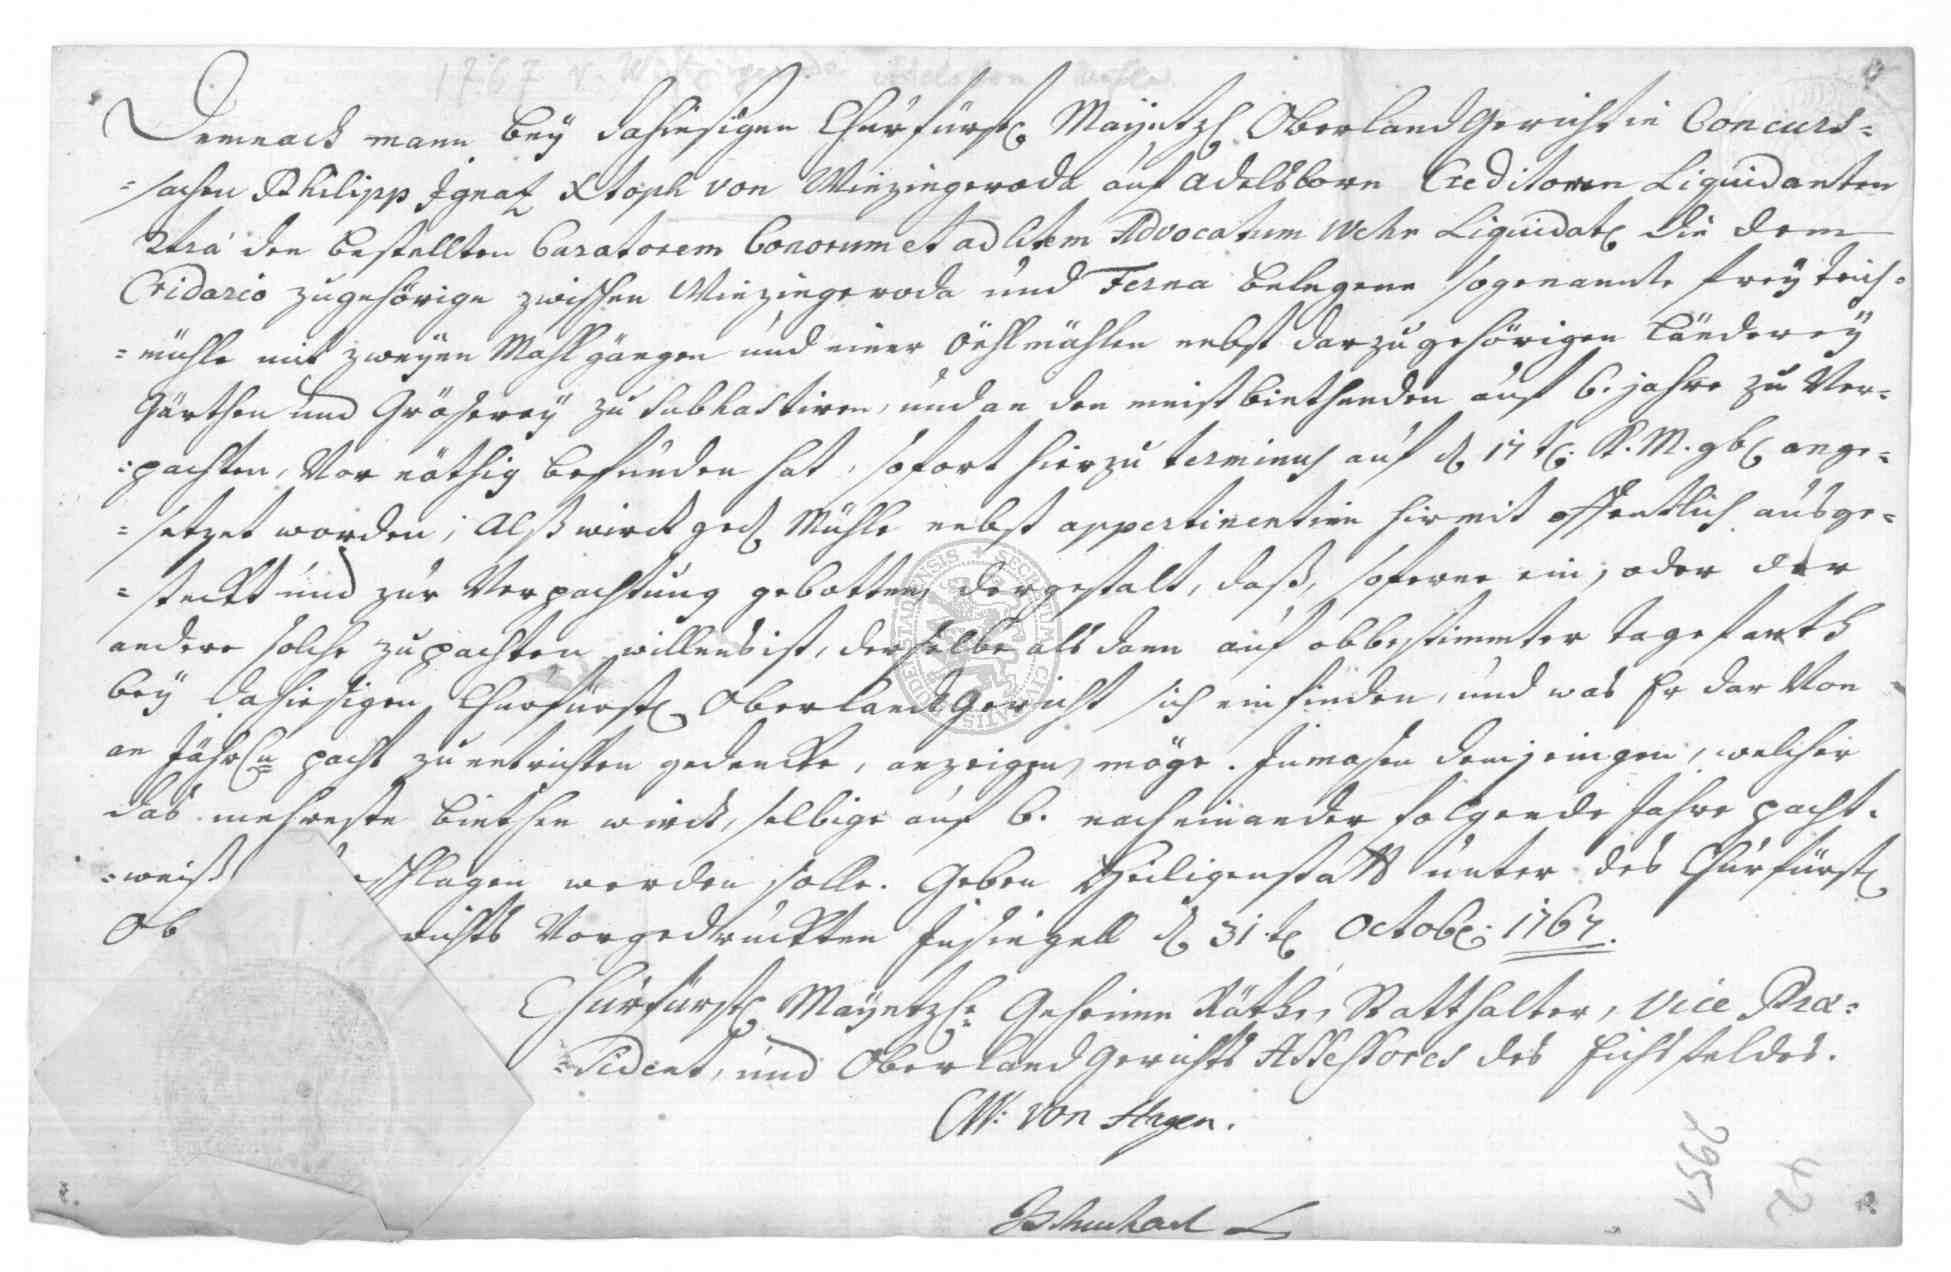 1767 v. Wintzingeroda Adelsborn
Demnach mann bey dahiesigen Churfürstl Mayntzl OberlandGericht in Concurs=
=sachen Philipp Ignatz Xtoph von Winzingeroda auf Adelsborn Creditoren Liquidanten
Ctrà den bestellten Curatorem bonorum et ad litem Advocatum Wehr Liquidatl die dem
Cridario zugehörige zwischen Winzingeroda und Ferna belegene sogenannte freyteich=
=mühle mit zweyen Mahlgängen und einer öehlmühlen nebst darzugehörigen Länderey
Gärthen und Gräserey zu subhastiren, und an den meistbiethenden auf 6. jahre zu Ver=
=pachten, Vor nöthig befunden hat, sofort hierzu terminus auf d 17 t. K. M. 9bl ange=
=setzet worden; Alß wirdt gedl Mühle nebst appertinentien hirmit offentlich ausge=
=steckt und zur Verpachtung gebotten, dergestalt, daß, soferne ein, oder der
andere solche zu pachten willens ist, derselbe alsdann auf obbestimmter tagefarth
bey dahiesigen Churfürstl OberlandGericht sich einfinden, und was Er darVon
an Jährln pacht zu entrichten gedencke, anzeigen möge. Inmasen demjenigen, welcher
das mehreste biethen wirdt, selbige auf 6. nacheinander folgende Jahre pacht=
=weiß schlagen werden solle. Geben Heiligenstatt unter des Churfürstl
Ob richts Vorgedruckten Insiegell d 31.t Octobl: 1767.
Churfürstl Mayntzhe Geheime Räthe, Statthalter, Vice Præ=
=sident, und OberlandGerichts Assessores des Eichsfeldes.
CW: von Hagen.
2951
42
SECRETUM CIVITATIS IDENSTADENSIS